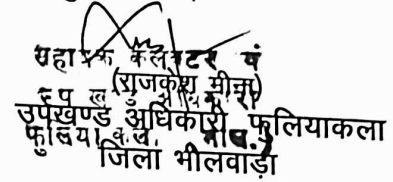 सहायक कलेक्टर एवं
(राजकेश मीना)
उपखण्ड अधिकारी फुलियाकला
फुलिया कलां
जिला भीलवाड़ा